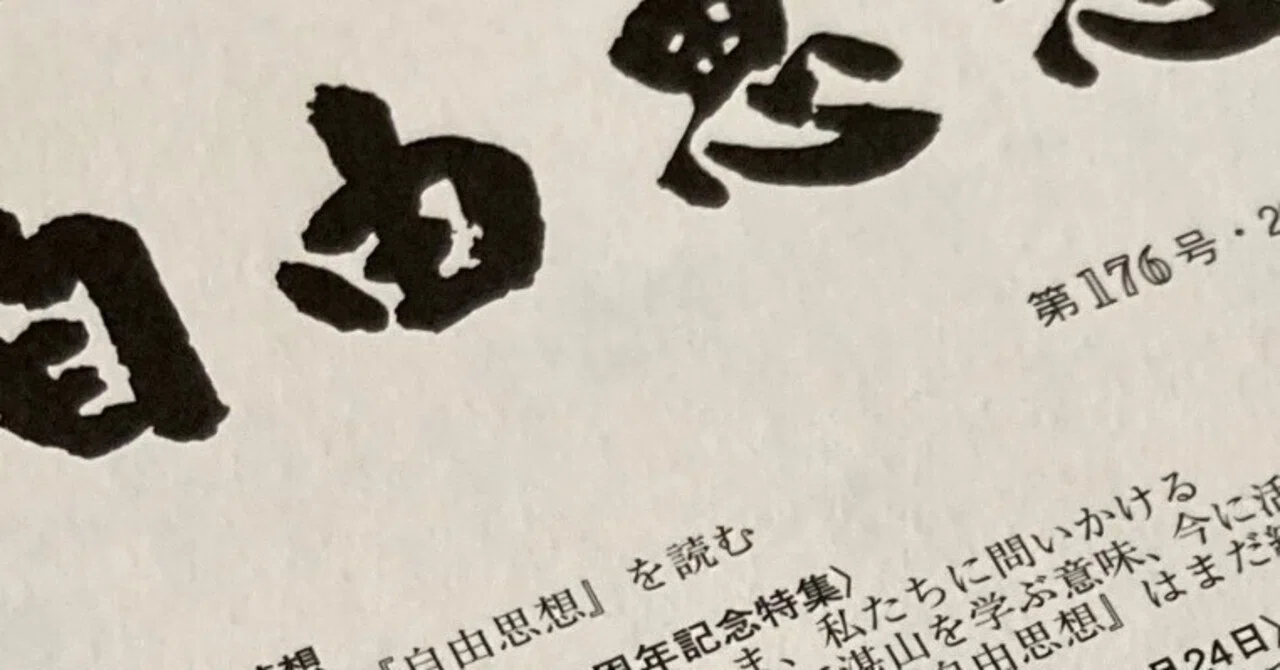 自由思想
第176号・2
『自由思想』を読む
周年記念特集〉
ま、私たちに問いかける
湛山を学ぶ意味、今に活
自由思想』はまだ
月24日〉